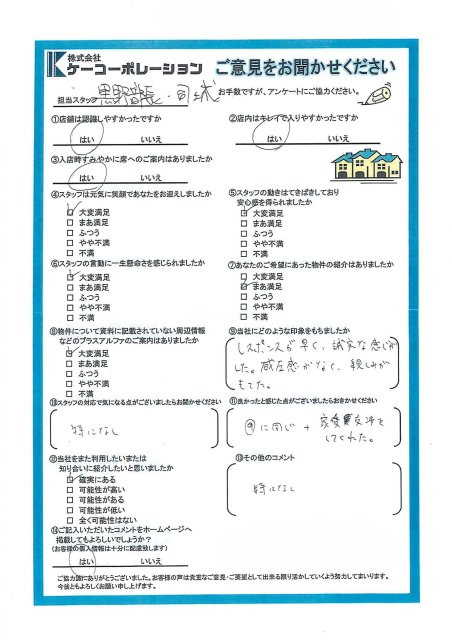 株式会社
ケーコーポレーション ご意見をお聞かせください
担当スタッフ 黒野 店長・ お手数ですが、アンケートにご協力ください。
①店舗は認識しやすかったですか
はい いいえ
②店内はキレイで入りやすかったですか
はい いいえ
③入店時すみやかに席へのご案内はありましたか
はい いいえ
④スタッフは元気に笑顔であなたをお迎えしましたか
大変満足
まあ満足
ふつう
やや不満
不満
⑤スタッフの動きはてきぱきしており
安心感を得られましたか
大変満足
まあ満足
ふつう
やや不満
不満
⑥スタッフの言動に一生懸命さを感じられましたか
大変満足
まあ満足
ふつう
やや不満
不満
⑦あなたのご希望にあった物件の紹介はありましたか
大変満足
まあ満足
ふつう
やや不満
不満
⑧物件について資料に記載されていない周辺情報
などのプラスアルファのご案内はありましたか
大変満足
まあ満足
ふつう
やや不満
不満
⑨当社にどのような印象をもちましたか
レスポンスが早く、誠実な感じが
した。威圧感がなく、親しみが
もてた。
⑩スタッフの対応で気になる点がございましたらお聞かせください
特になし
⑪良かったと感じた点がございましたらおきかせください
⑨に同じ + 家賃交渉を
してくれた。
⑫当社をまた利用したいまたは
知り合いに紹介したいと思いましたか
確実にある
可能性が高い
可能性がある
可能性が低い
全く可能性はない
⑬その他のコメント
特になし
⑭ご記入いただいたコメントをホームページへ
掲載してもよろしいでしょうか?
(お客様の個人情報は十分に配慮致します)
はい いいえ
ご協力誠にありがとうございました。お客様の声は貴重なご意見・ご要望として出来る限り活かしていくよう努力してまいります。
今後ともよろしくお願い申し上げます。